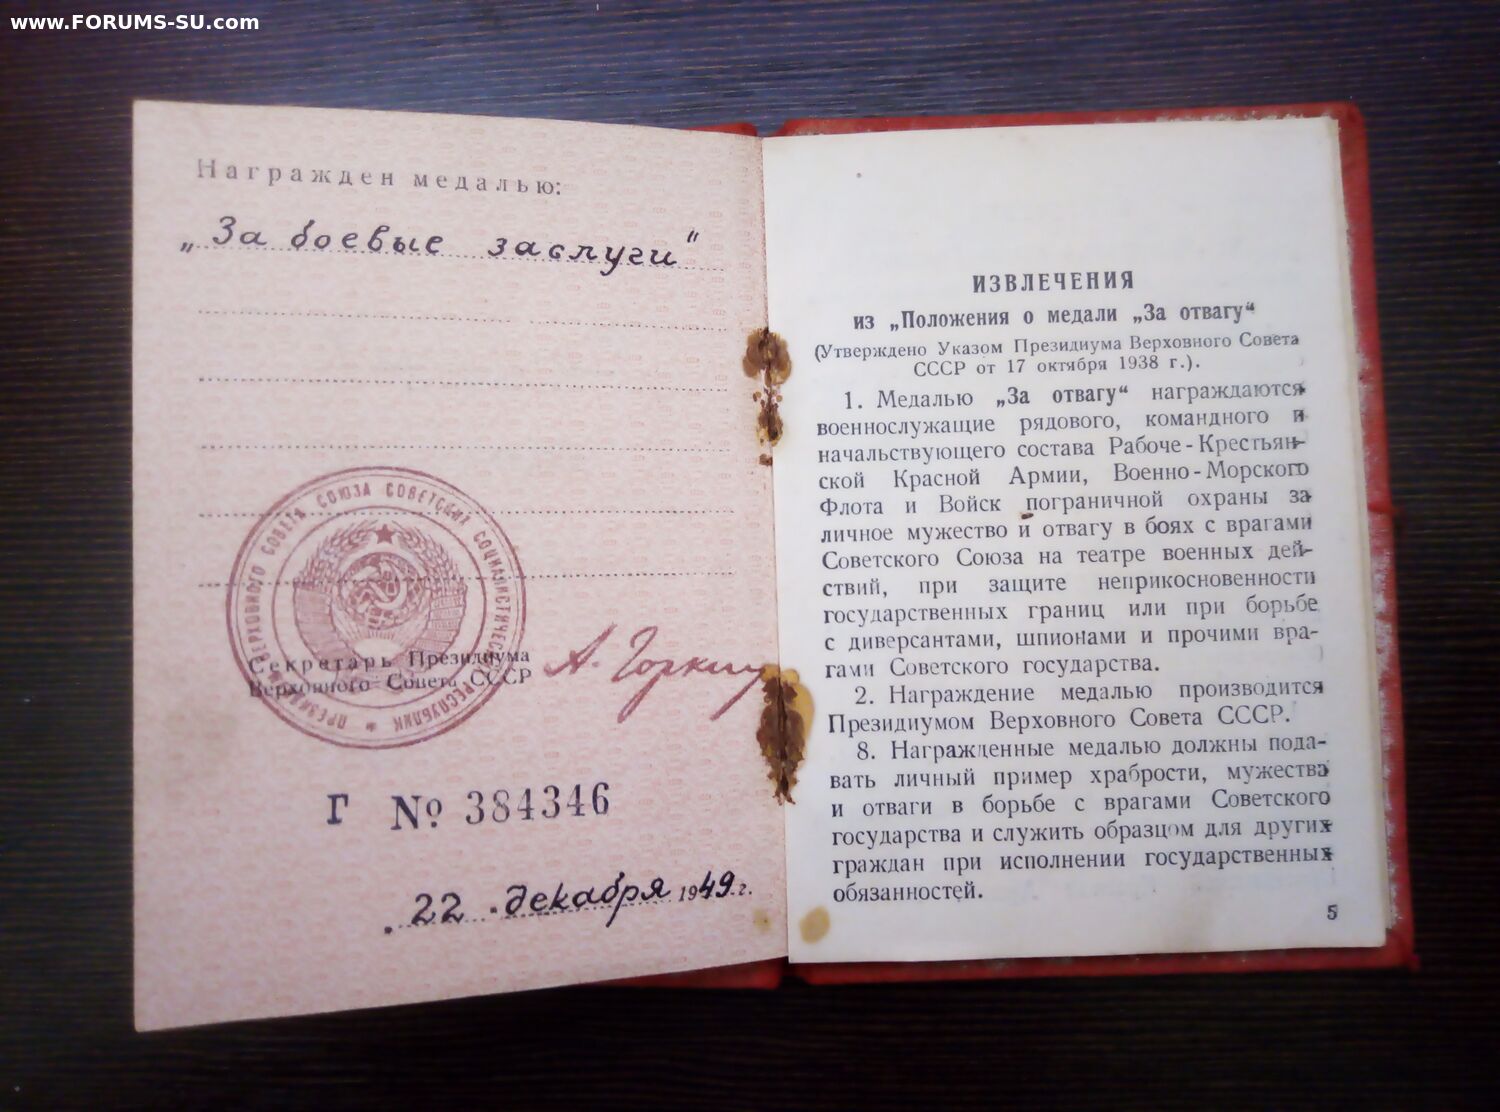 www.FORUMS-SU.com
Награжден медалью:
„За боевые заслуги"
ПРЕЗИДИУМ ВЕРХОВНОГО СОВЕТА СОЮЗА СОВЕТСКИХ СОЦИАЛИСТИЧЕСКИХ РЕСПУБЛИК *
Секретарь Президиума
Верховного Совета СССР
А. Горкин
Г № 384346
22 декабря 1949 г.
ИЗВЛЕЧЕНИЯ
из „Положения о медали „За отвагу“
(Утверждено Указом Президиума Верховного Совета
СССР от 17 октября 1938 г.).
1. Медалью „За отвагу“ награждаются
военнослужащие рядового, командного и
начальствующего состава Рабоче-Крестьян-
ской Красной Армии, Военно-Морского
Флота и Войск пограничной охраны за
личное мужество и отвагу в боях с врагами
Советского Союза на театре военных дей-
ствий, при защите неприкосновенности
государственных границ или при борьбе
с диверсантами, шпионами и прочими вра-
гами Советского государства.
2. Награждение медалью производится
Президиумом Верховного Совета СССР.
8. Награжденные медалью должны пода-
вать личный пример храбрости, мужества
и отваги в борьбе с врагами Советского
государства и служить образцом для других
граждан при исполнении государственных
обязанностей.
5